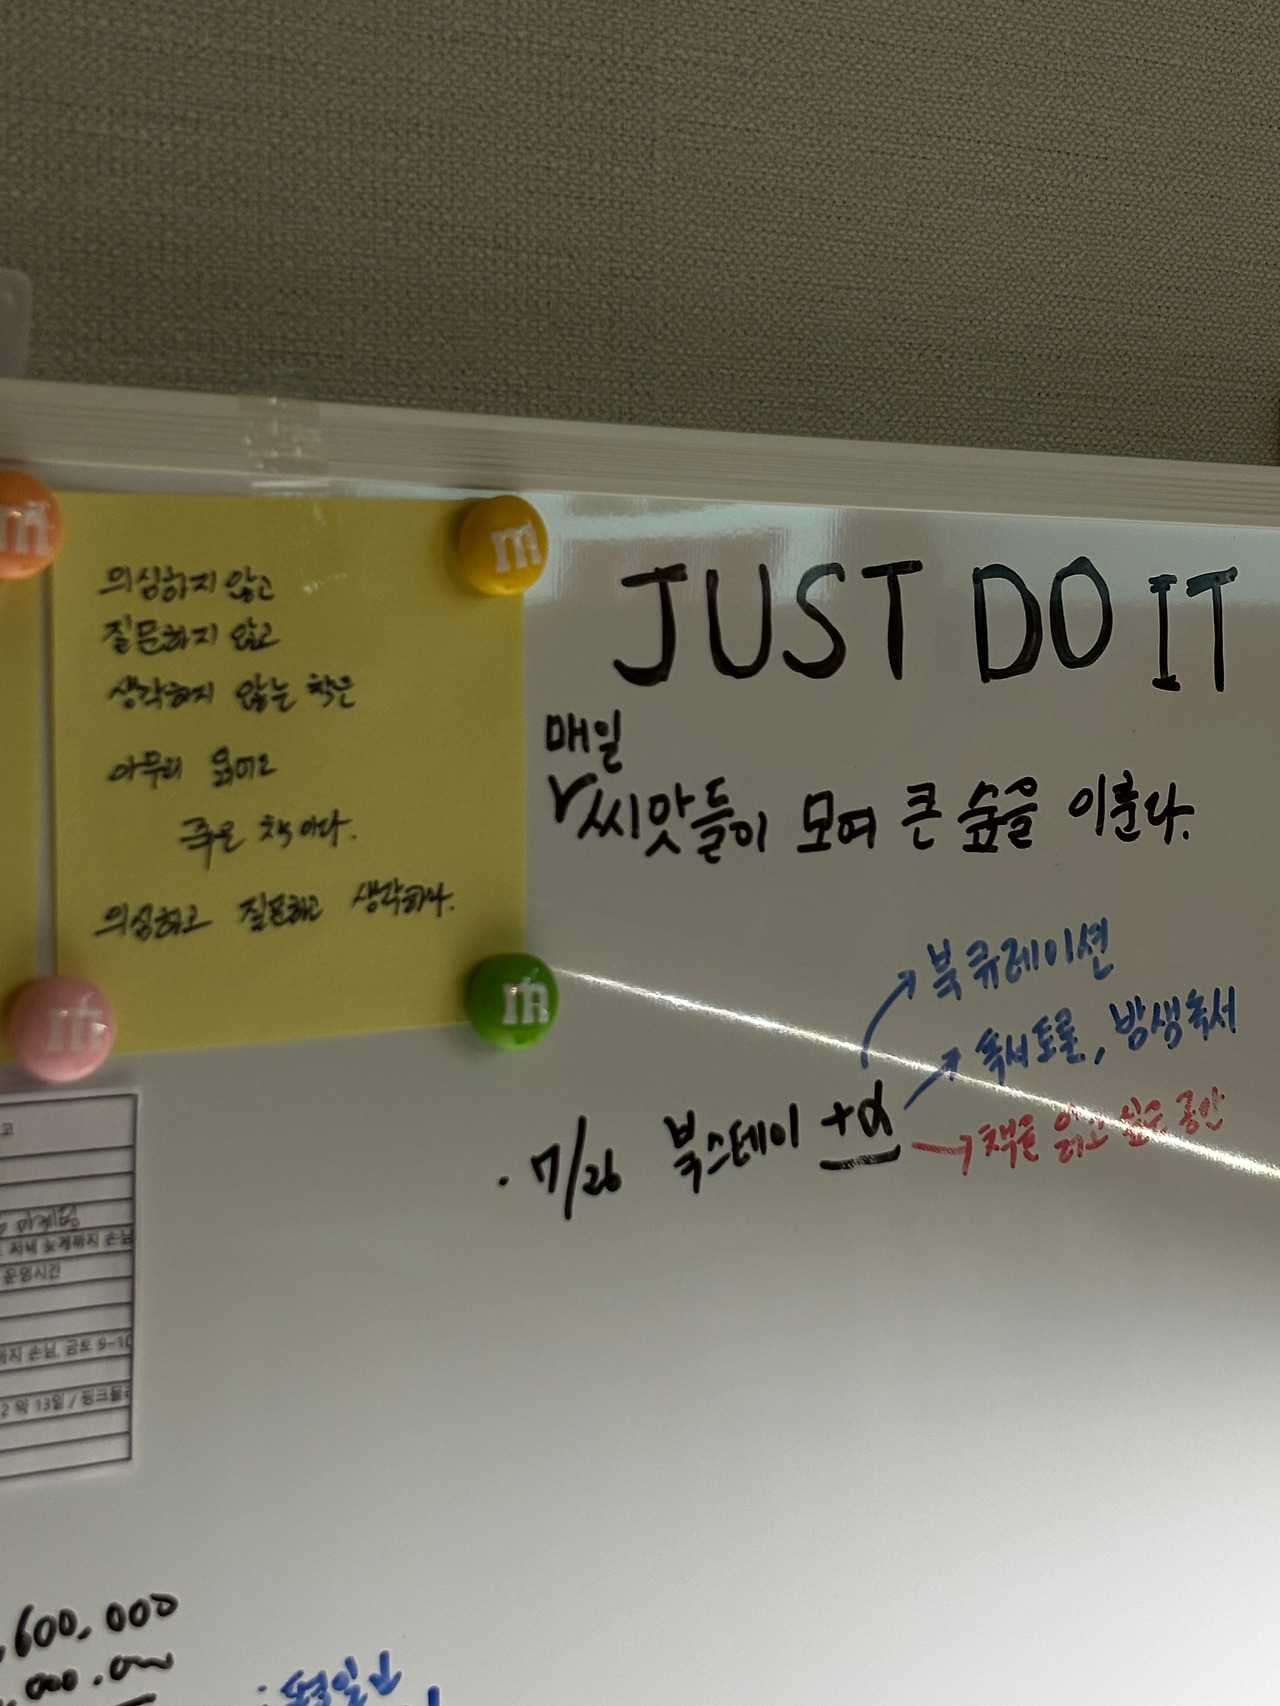 의심하지 않고
질문하지 않고
생각하지 않는 책은
아무리 읽어도
죽은 책이다.
의심하고 질문하고 생각하라.
JUST DO IT
매일
씨앗들이 모여 큰 숲을 이룬다.
북큐레이션
독서토론, 밤샘독서
· 7/26 북스테이 +α
책을 읽고 싶은 공간
고
마케팅
저녁 늦게까지 손님
운영시간
까지 손님, 금토 9~10
2월 13일 / 핑크뮬리
,600,000
,000.000
m
m
m
m